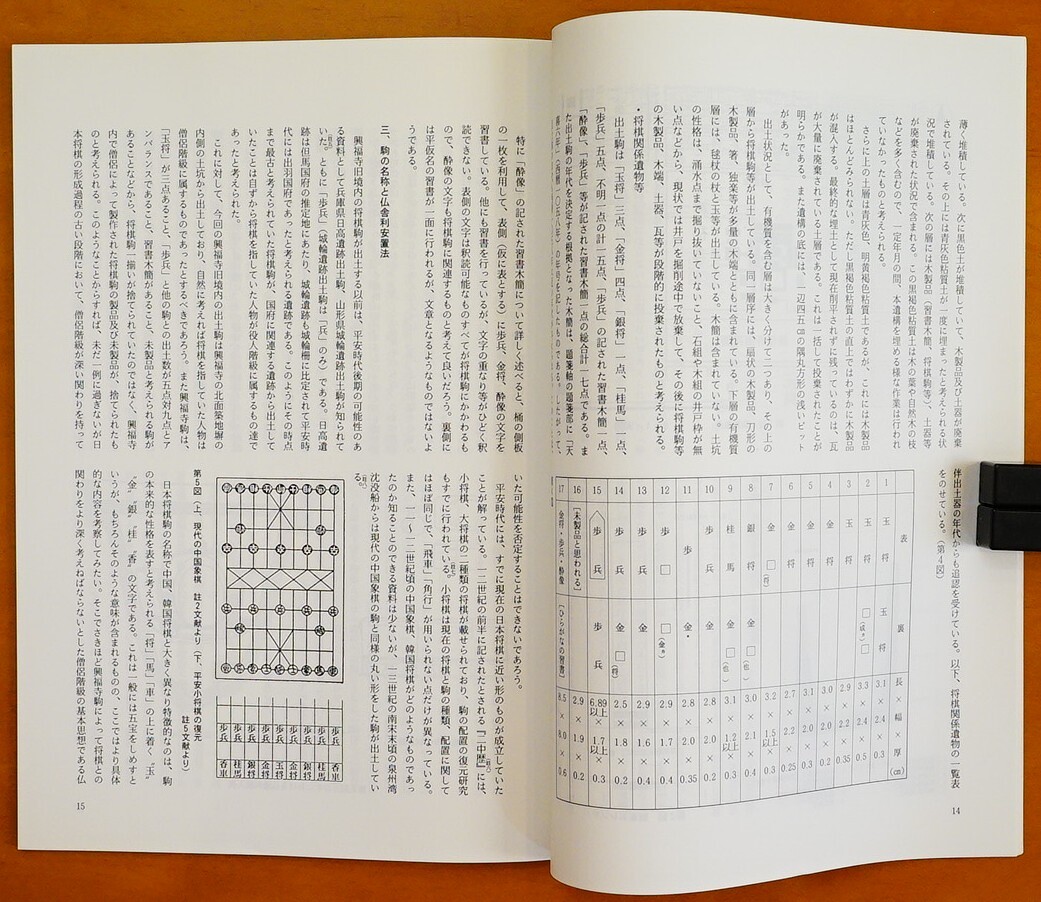 薄く堆積している。次に黒色土が堆積していて、木製品及び土器が廃棄
されている。その上には青灰色粘質土が一度に埋まったと考えられる状
況で堆積している。次の層には木製品(習書木簡、将棋駒等)、土器等
が廃棄された状況で含まれる。この黒褐色粘質土は木の葉や自然木の枝
などを多く含むので、一定年月の間、本遺構を埋める様な作業は行われ
ていなかったものと考えられる。
さらに上の土層は青灰色、明黄褐色粘質土であるが、これには木製品
はほとんどみられない。ただし黒褐色粘質土の直上ではわずかに木製品
が混入する。最終的な埋土として現在削平されずに残っているのは、瓦
が大量に廃棄されている土層である。これは一括して投棄されたことが
明らかである。また遺構の底には、一辺四五㎝の隅丸方形の浅いピット
があった。
出土状況として、有機質を含む層は大きく分けて二つあり、その上の
層から将棋駒等が出土している。同一層序には、扇状の木製品、刀形の
木製品、箸、独楽等が多量の木端とともに含まれている。下層の有機質
層には、毬杖の杖と玉等が出土している。木簡は含まれていない。土坑
の性格は、涌水点まで掘り抜いていないこと、石組や木組の井戸枠が無
い点などから、現状では井戸を掘削途中で放棄して、その後に将棋駒等
の木製品、木端、土器、瓦等が段階的に投棄されたものと考えられる。
・将棋関係遺物等
出土駒は「玉将」三点、「金将」四点、「銀将」一点、「桂馬」一点、
「歩兵」五点、不明一点の計一五点、「歩兵」の記された習書木簡一点、
「酔像」、「歩兵」等が記された習書木簡一点の総合計一七点である。ま
た出土駒の年代を決定する根拠となった木簡は、題箋軸の題箋部に「天
伴出土器の年代からも追認を受けている。以下、将棋関係遺物の一覧表
をのせている。(第4図)
表 裏 長×幅×厚(㎝)
1 玉将 玉将 3.1×2.4×0.3
2 玉将 3.3×2.4×0.5
3 玉将 2.9×2.2×0.35
4 金将 3.0×2.2×0.3
5 金将 3.1×2.0×0.3
6 金将 2.7×2.2×0.25
7 金□(将) 3.2×1.5以上×0.3
8 銀将 金 3.0×2.1×0.4
9 桂馬 金 3.1×1.2以上×0.3
10 歩兵 金 2.8×2.0×0.2
11 歩 金 2.8×2.0×0.35
12 歩□ □(金ヵ) 2.9×1.7×0.4
13 歩兵 金 2.9×1.6×0.4
14 歩兵 金 2.5×1.8×0.2
15 歩兵 歩兵 6.89以上×1.7以上×0.3
16 [未製品と思われる] 2.9×1.9×0.2
17 金将・歩兵・酔像 [ひらがなの習書] 8.5×8.0×0.6
14
特に「酔像」の記された習書木簡について詳しく述べると、桶の側板
の一枚を利用して、表側(仮に表とする)に歩兵、金将、酔像の文字を
習書している。他にも習書を行っているが、文字の重なり等がひどく釈
読できない。表側の文字は釈読可能なものすべてが将棋駒にかかわるも
ので、酔像の文字も将棋駒に関連するものと考えて良いだろう。裏側に
は平仮名の習書が一面に行われるが、文章となるようなものではないよ
うである。
三、駒の名称と仏舎利安置法
興福寺旧境内の将棋駒が出土する以前は、平安時代後期の可能性のあ
る資料として兵庫県日高遺跡出土駒、山形県城輪遺跡出土駒が知られて
いた。ともに「歩兵」(城輪遺跡出土駒は「兵」のみ)である。日高遺
跡は但馬国府の推定地にあたり、城輪遺跡も城輪柵に比定されて平安時
代には出羽国府であったと考えられる遺跡である。このようにその時点
まで最古と考えられていた将棋駒が、国府に関連する遺跡から出土して
いたことは自ずから将棋を指していた人物が役人階級に属するもの達で
あったと考えられた。
これに対して、今回の興福寺旧境内の出土駒は興福寺の北面築地塀の
内側の土坑から出土しており、自然に考えれば将棋を指していた人物は
僧侶階級に属するものであったとするべきであろう。また興福寺駒は、
「玉将」が三点あること、「歩兵」と他の駒との出土数が五点対九点とア
ンバランスであること、習書木簡があること、未製品と考えられる駒が
あることなどから、将棋駒一揃いが捨てられていたのではなく、興福寺
内で僧侶によって製作された将棋駒の製品及び未製品が、捨てられたも
のと考えられる。このようなことからすれば、未だ一例に過ぎないが日
本将棋の形成過程の古い段階において、僧侶階級が深い関わりを持って
いた可能性を否定することはできないであろう。
平安時代には、すでに現在の日本将棋に近い形のものが成立していた
ことが解っている。一二世紀の前半に記されたとされる『二中歴』には、
小将棋、大将棋の二種類の将棋が載せられており、駒の配置の復元研究
もすでに行われている。小将棋は現在の将棋と駒の種類、配置に関して
はほぼ同じで、「飛車」「角行」が用いられない点だけが異なっている。
また、一一~一二世紀頃の中国象棋、韓国将棋がどのようなものであっ
たのか知ることのできる資料は少ないが、一三世紀の南宋末頃の泉州湾
沈没船からは現代の中国象棋の駒と同様の丸い形をした駒が出土してい
る。
歩兵 歩兵 歩兵 歩兵 歩兵 歩兵 歩兵 歩兵 歩兵
香車 桂馬 銀将 金将 玉将 金将 銀将 桂馬 香車
第5図(上、現代の中国象棋 註2文献より)(下、平安小将棋の復元
註5文献より)
日本将棋駒の名称で中国、韓国将棋と大きく異なり特徴的なのは、駒
の本来的な性格を表すと考えられる「将」「馬」「車」の上に着く〝玉〟
〝金〟〝銀〟〝桂〟〝香〟の文字である。これは一般には五宝をしめすと
いうが、もちろんそのような意味が含まれるものの、ここではより具体
的な内容を考察してみたい。そこでさきほど興福寺駒によって将棋との
関わりをより深く考えねばならないとした僧侶階級の基本思想である仏
15